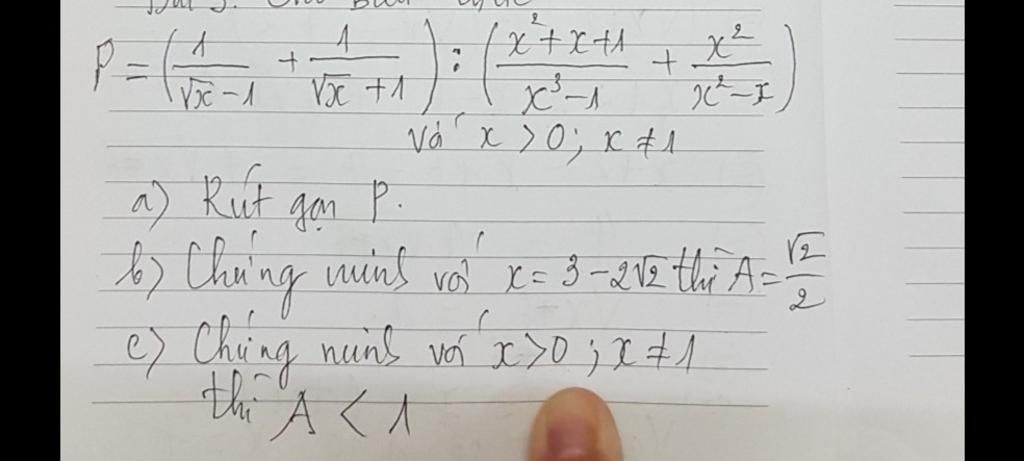 P = (1/(√x − 1) + 1/(√x + 1)) : ((x² + x + 1)/(x³ − 1) + x²/(x² − x))
Với x > 0; x ≠ 1
a) Rút gọn P.
b) Chứng minh với x = 3 − 2√2 thì A = √2/2
c) Chứng minh với x > 0; x ≠ 1
thì A < 1